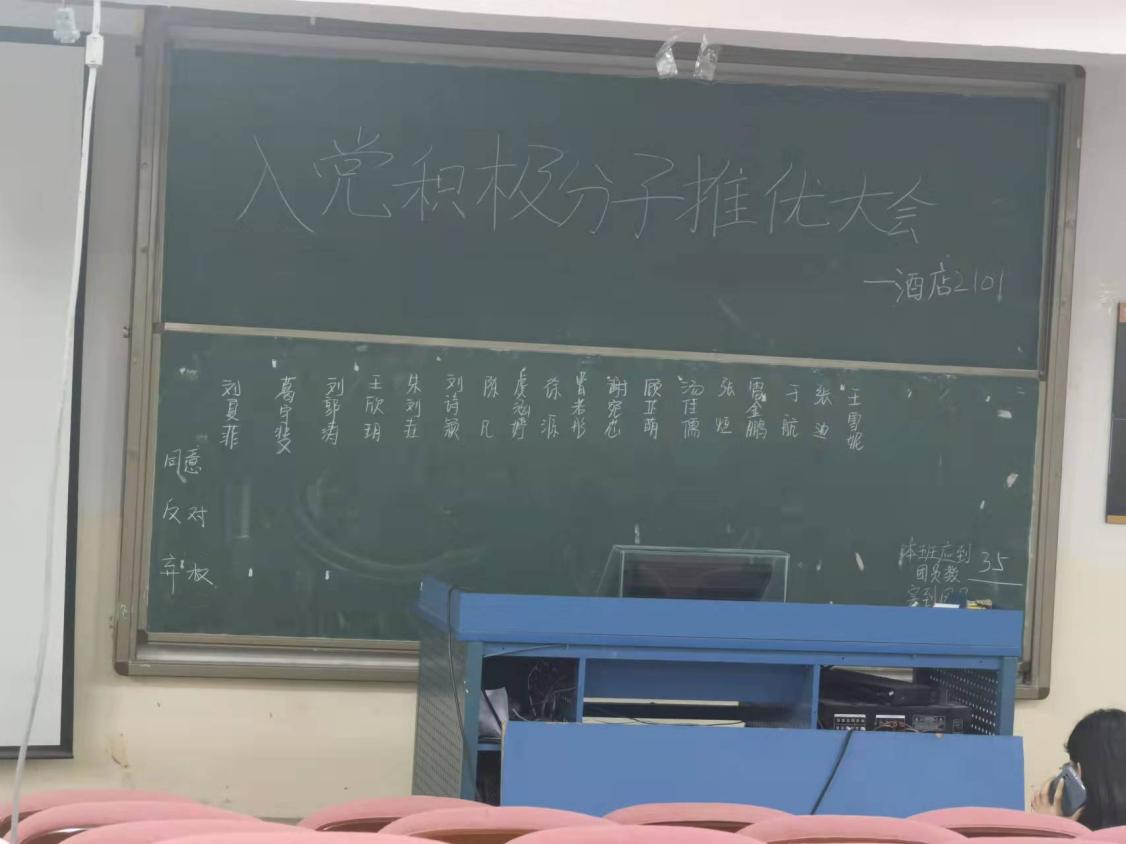 入党积极分子推优大会
一酒店2101
刘夏菲
葛宇斐
刘郭涛
王欣玥
朱刘
刘诗
陈凡
徐源
谢宛
顾芷萌
汤佳儒
张恒
雷金鹏
于航
张迪
王雪妮
同意
反对
弃权
本班应到
团员数 35
实到